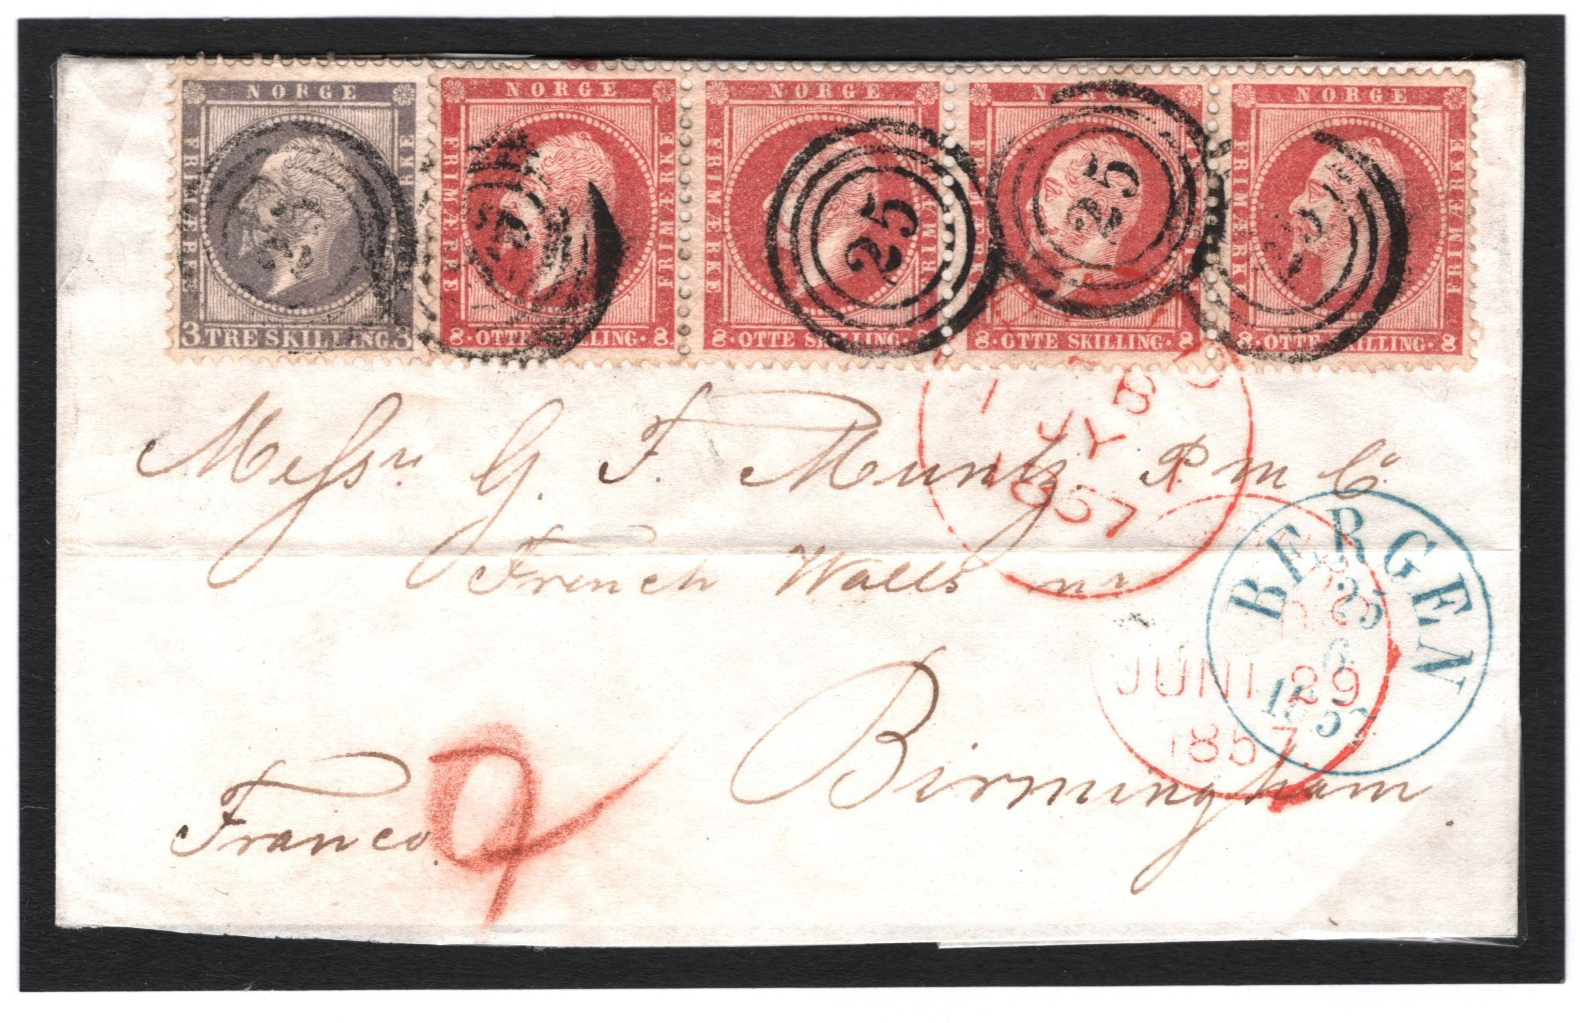 NORGE NORGE NORGE NORGE NORGE
FRIMÆRKE FRIMÆRKE FRIMÆRKE FRIMÆRKE FRIMÆRKE
25 25 25 25 25
3 TRE SKILLING 3 8 · OTTE SKILLING · 8 8 · OTTE SKILLING · 8 8 · OTTE SKILLING · 8 8 · OTTE SKILLING · 8
JY
1857
Messrs G. F. Muntz P. M. Co.
French Walls nr
Birmingham
BERGEN
25
6
1857
JUNI 29
1857.
Franco.